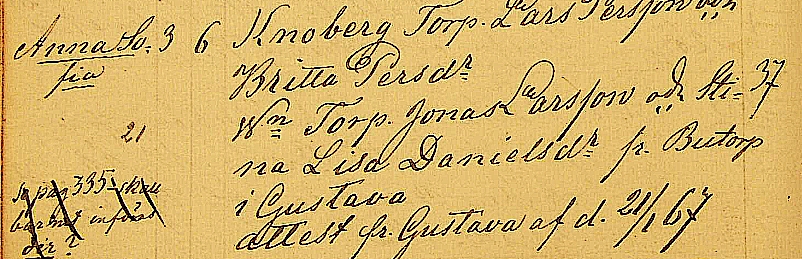 Anna So- 3 6 Knoberg Torp. Lars Persson och
fia Britta Persdr
Wn Torp. Jonas Larsson och Sti- 37
21
na Lisa Danielsdr fr. Butorp
Se pag 335 skall
i Gustava
införas
där?
attest fr. Gustava af d. 21/1 67